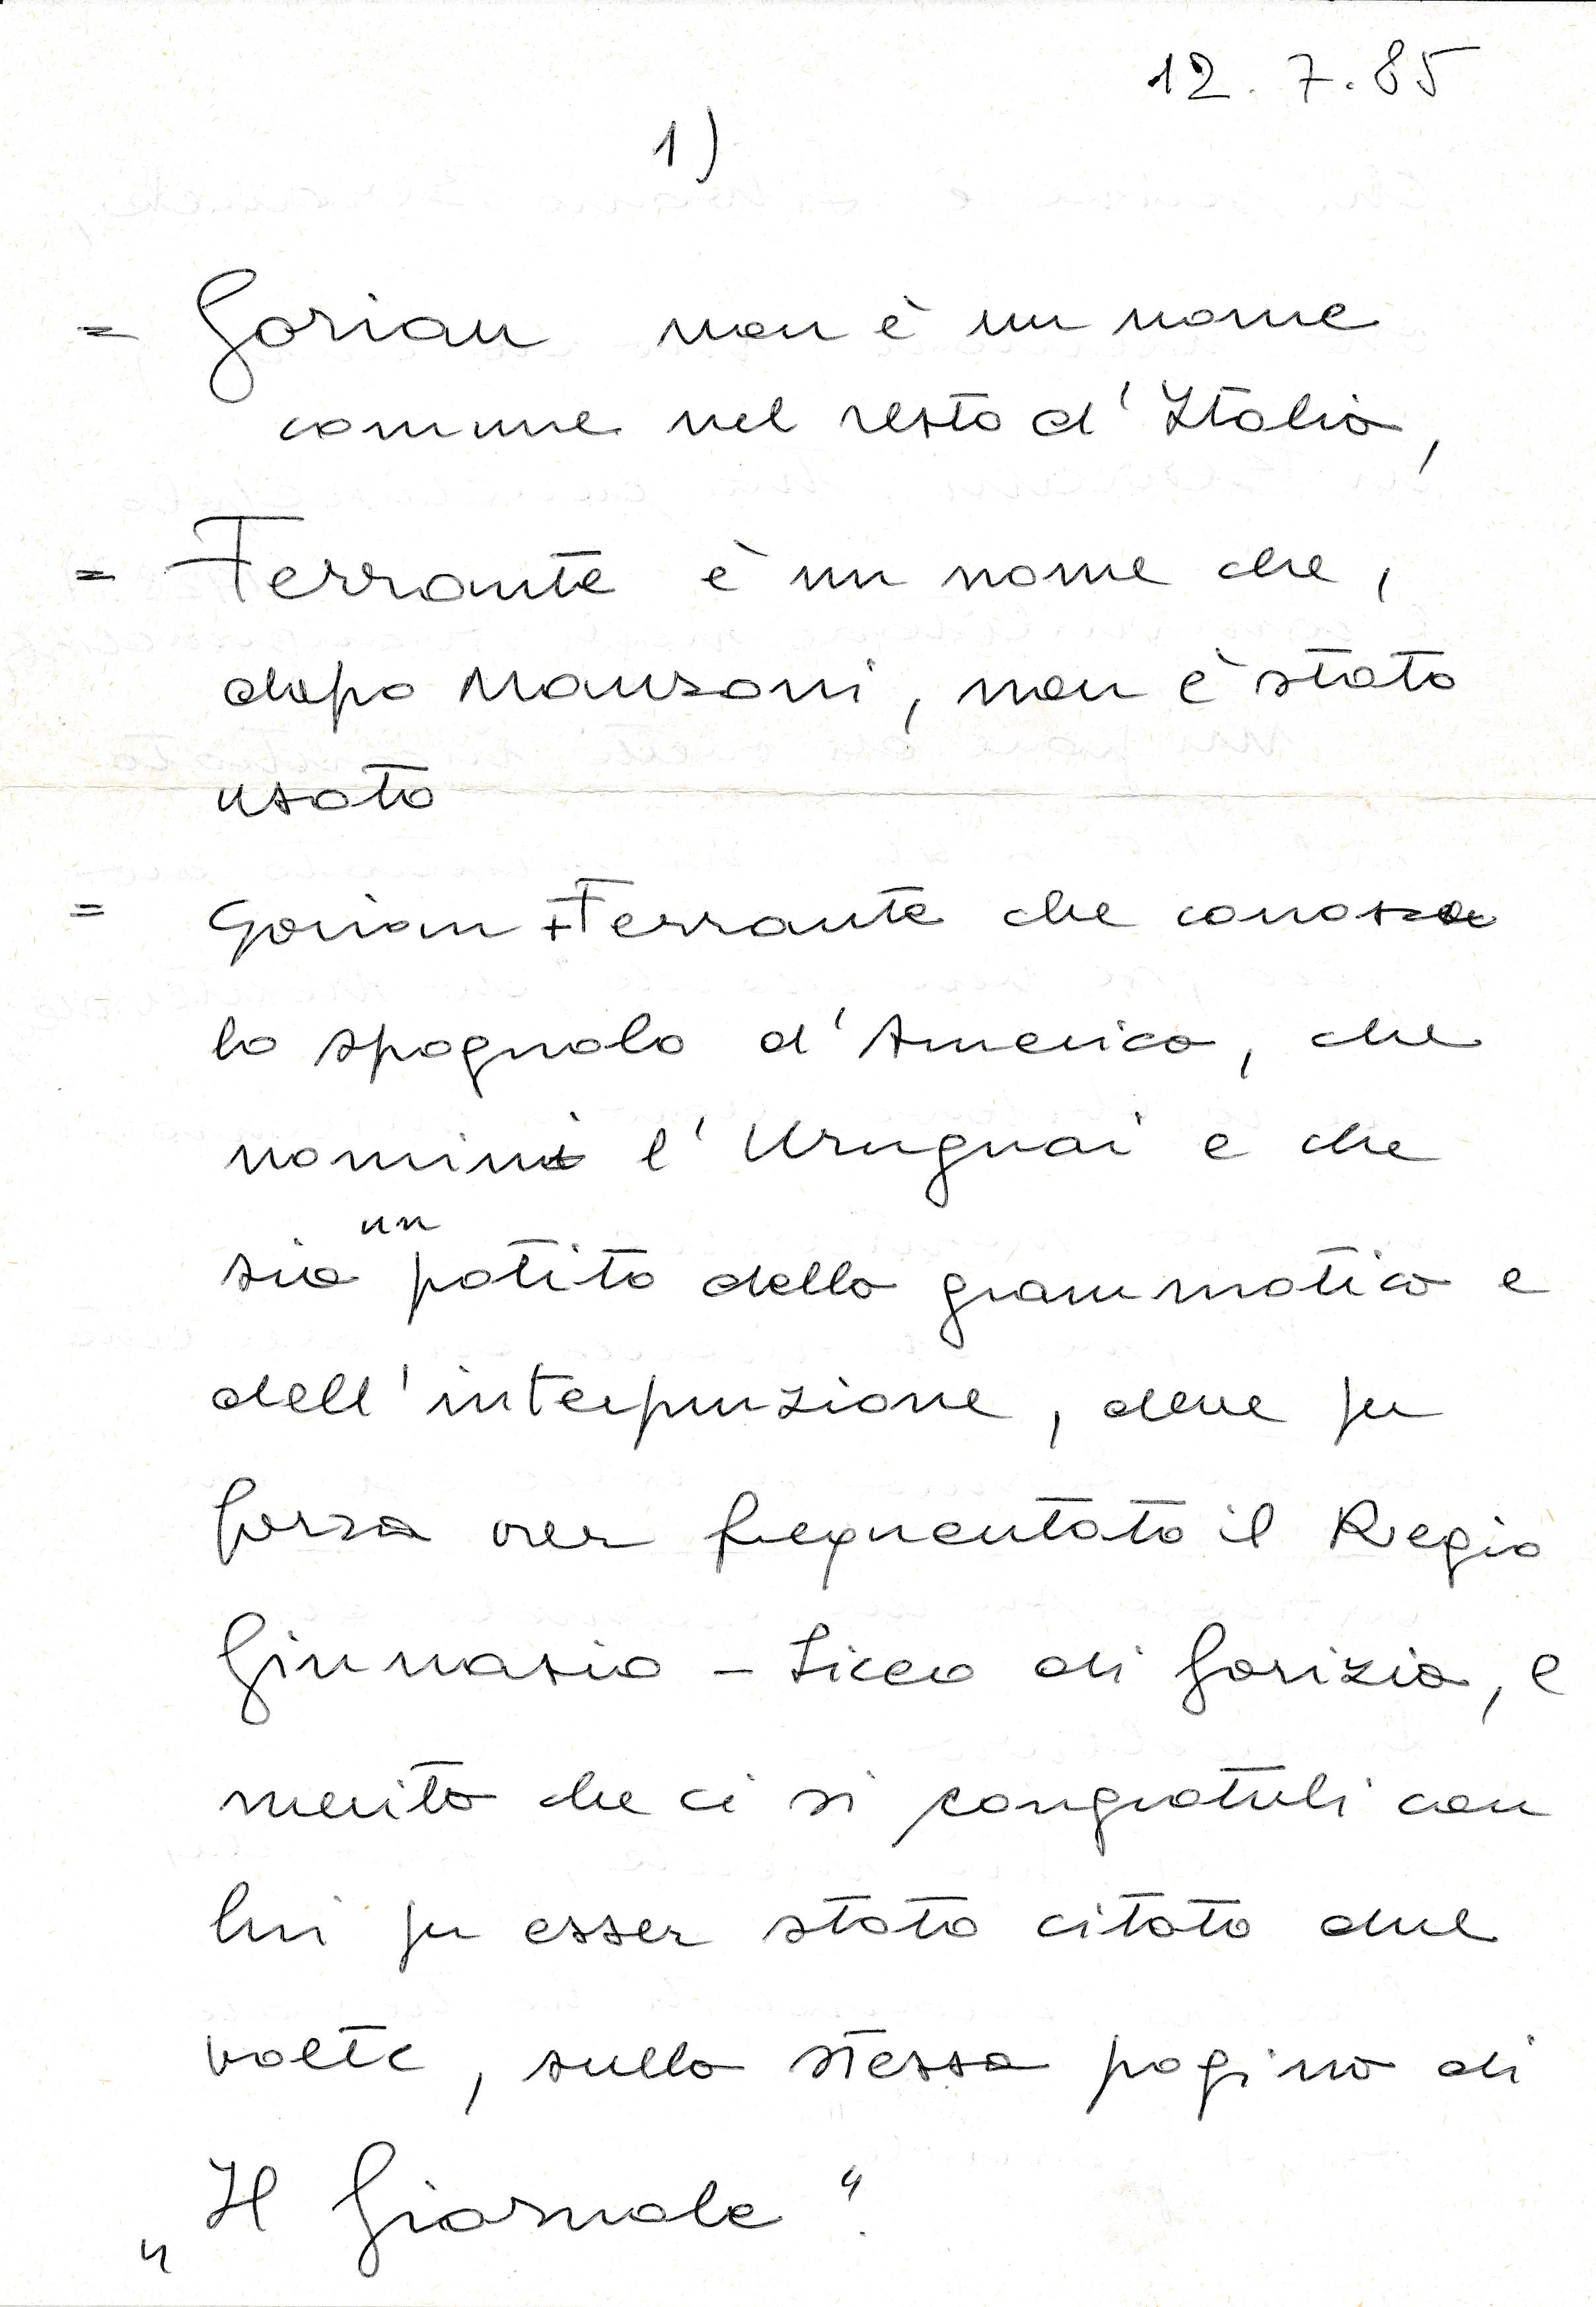 12.7.85
1)
= Gorian non è un nome
comune nel resto d'Italia,
= Ferrante è un nome che,
dopo Manzoni, non è stato
usato
= Gorian + Ferrante che conosca
lo spagnolo d'America, che
nomini l'Uruguai e che
sia un patito della grammatica e
dell'interpunzione, deve per
forza aver frequentato il Regio
Ginnasio - Liceo di Gorizia, e
merita che ci si congratuli con
lui per esser stato citato due
volte, sulla stessa pagina di
„Il Giornale“.